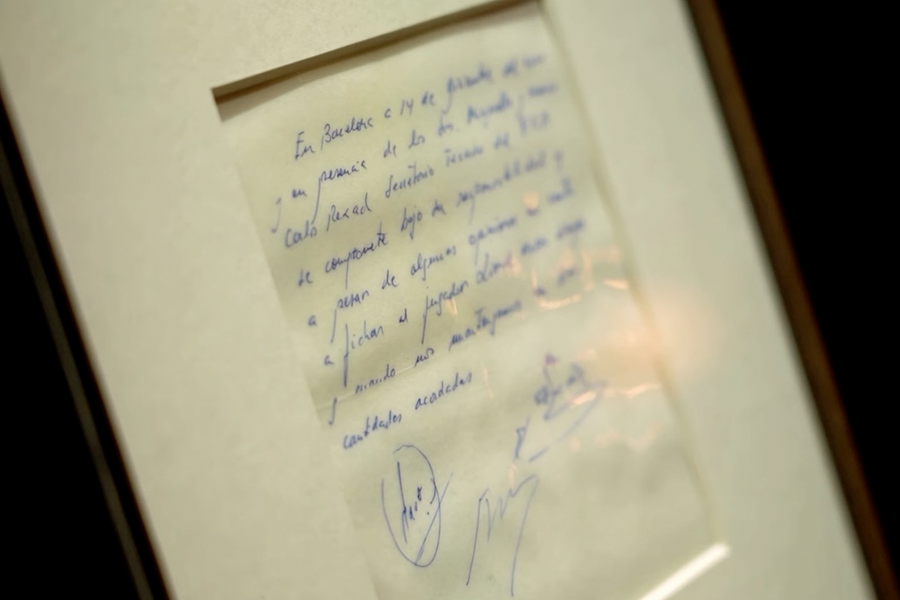 En Barcelona a 14 de diciembre del
y en presencia de los Srs. Minguella y
Carles Rexach Secretario Tecnico del F.C.B
se compromete bajo su responsabilidad y
a pesar de algunas opiniones en
a fichar al jugador Lionel Messi
y cuando nos mantengamos en las
cantidades acordadas